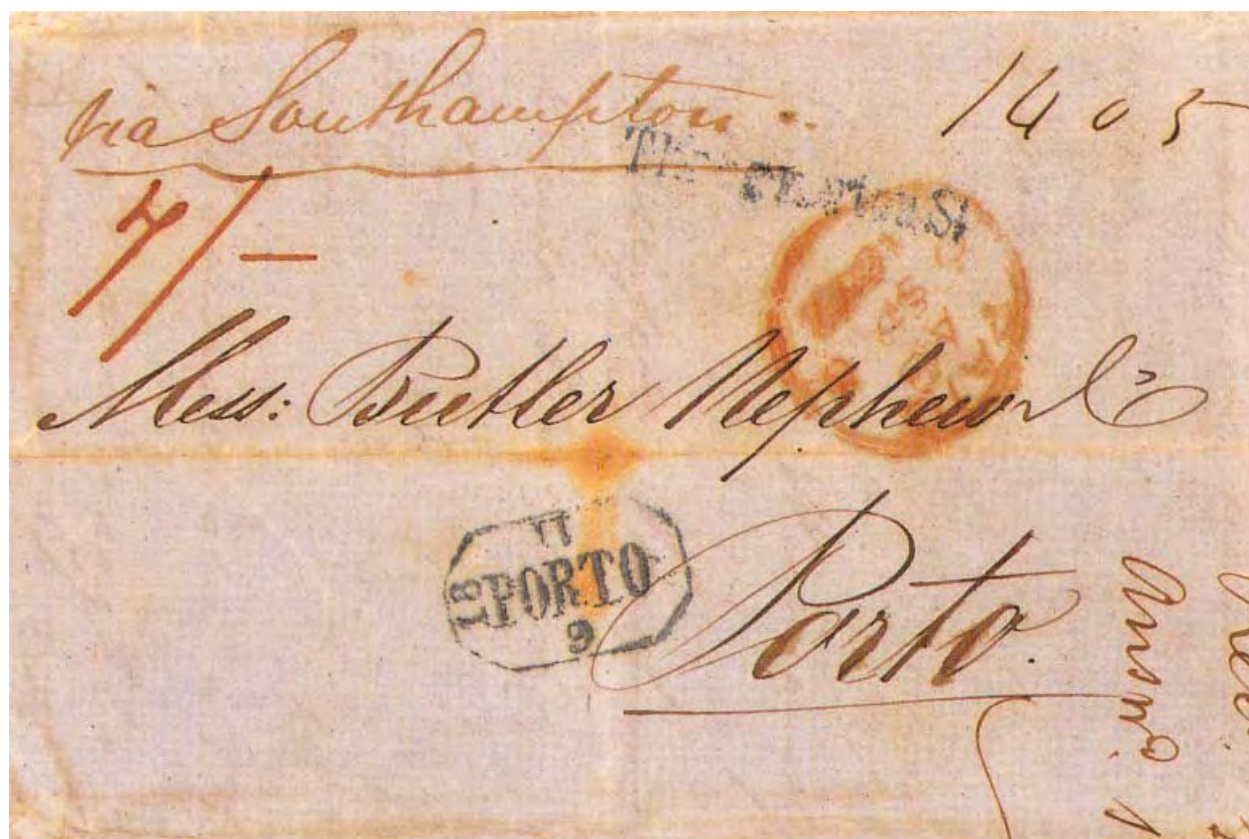 via Southampton 1405
7/-
Mess: Butler Nephew & Co
Porto.
11
18 PORTO
9
Answd.